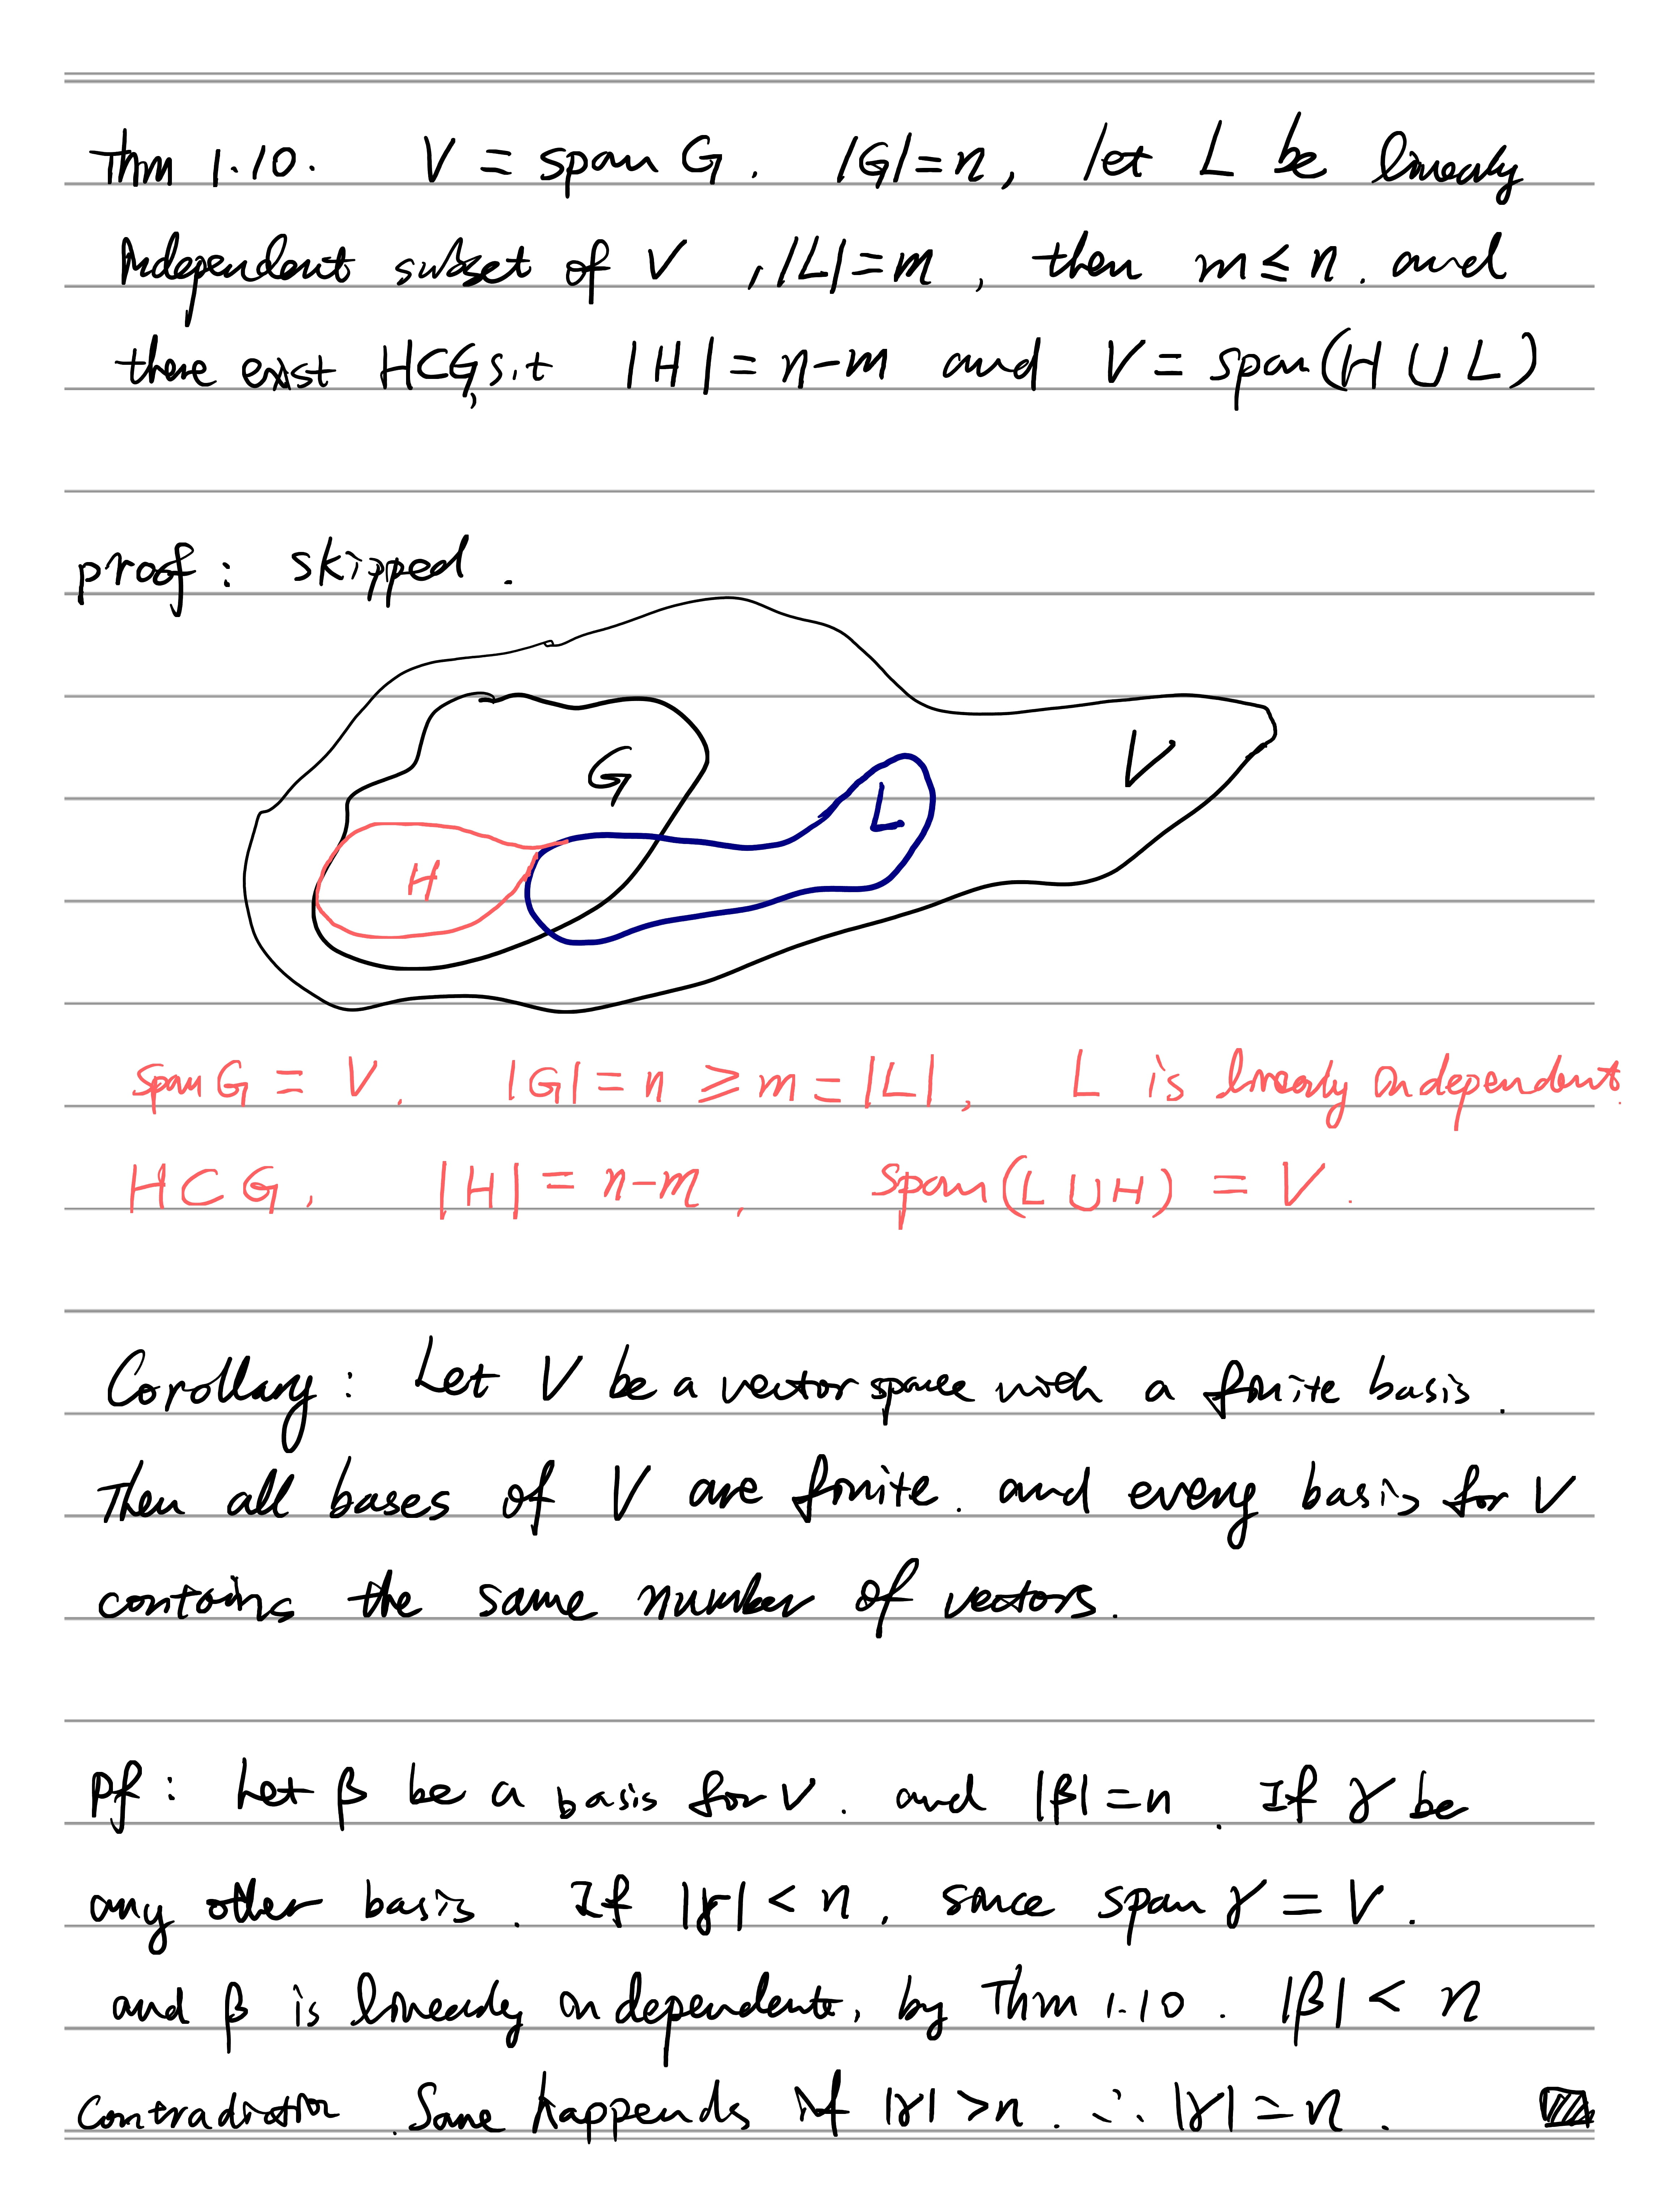 Thm 1.10. V = span G. |G|=n, let L be linearly
independent subset of V, |L|=m, then m≤n. and
there exist H⊂G, s.t |H|=n-m and V=span(H∪L)
proof: skipped.
G
V
L
H
span G = V. |G|=n ≥ m=|L|, L is linearly independent.
H⊂G, |H|=n-m, span(L∪H)=V.
Corollary: Let V be a vector space with a finite basis.
Then all bases of V are finite. and every basis for V
contains the same number of vectors.
Pf: Let β be a basis for V. and |β|=n. If γ be
any other basis. If |γ|<n, since span γ = V.
and β is linearly independent, by Thm 1.10. |β|<n
contradiction. Same happens if |γ|>n. ∴ |γ|=n.